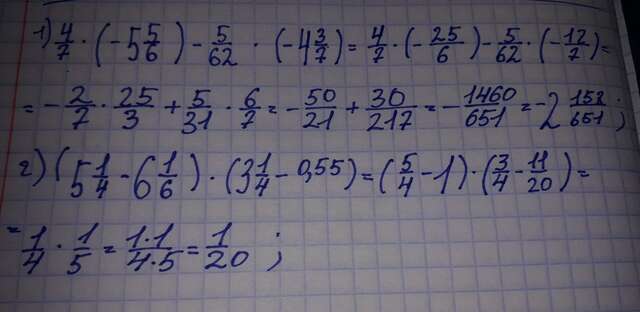 1) 4/7 · (-5 5/6) - 5/62 · (-4 3/7) = 4/7 · (-25/6) - 5/62 · (-12/7) =
= - 2/7 · 25/3 + 5/31 · 6/7 = - 50/21 + 30/217 = - 1460/651 = -2 158/651 ;
2) (5 1/4 - 6 1/6) · (3 1/4 - 0,55) = (5/4 - 1) · (3/4 - 11/20) =
= 1/4 · 1/5 = 1·1/4·5 = 1/20 ;